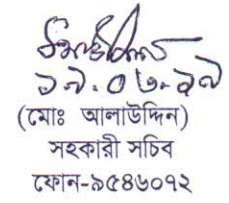 ১৯.০৬.১৭
(মোঃ আলাউদ্দিন)
সহকারী সচিব
ফোন-৯৫৪৬০৭২